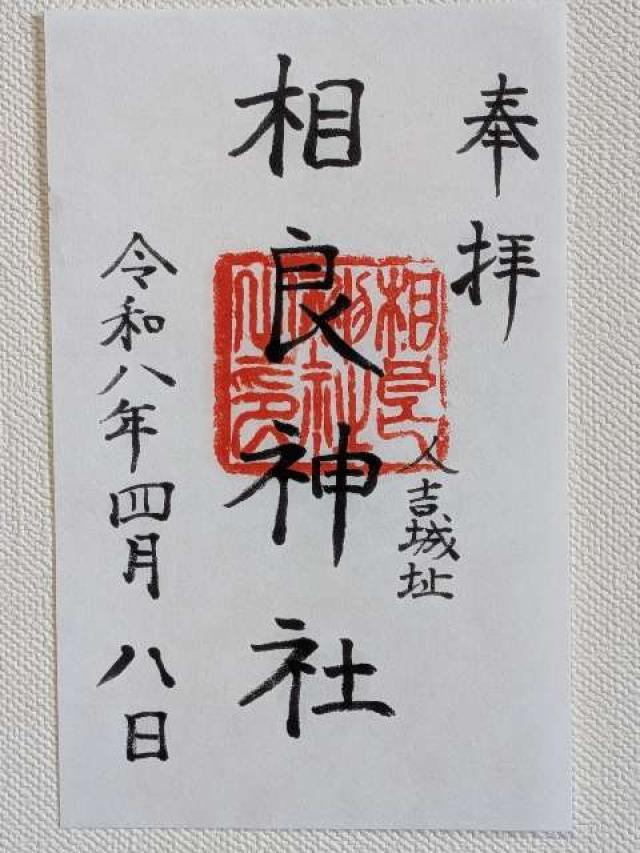 奉拝
人吉城址
相良神社
相良神社之印
令和八年四月八日